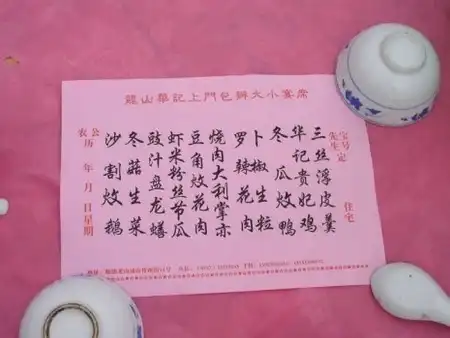 龍山華記上門包辦大小宴席
宝号定
先生
住宅
三丝浮皮羹
华记贵妃鸡
冬瓜炆鸭
卜椒生粒
罗辣花肉
烧肉大利掌亦
豆角炆花肉
虾米粉丝节瓜
豉汁盘龙鳝
冬菇生菜
沙割炆鹅
公
农历 年 月 日星期